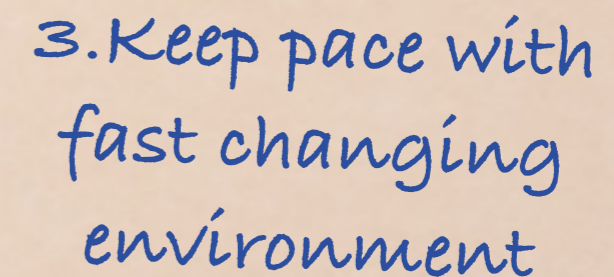 3.Keep pace with
fast changing
environment